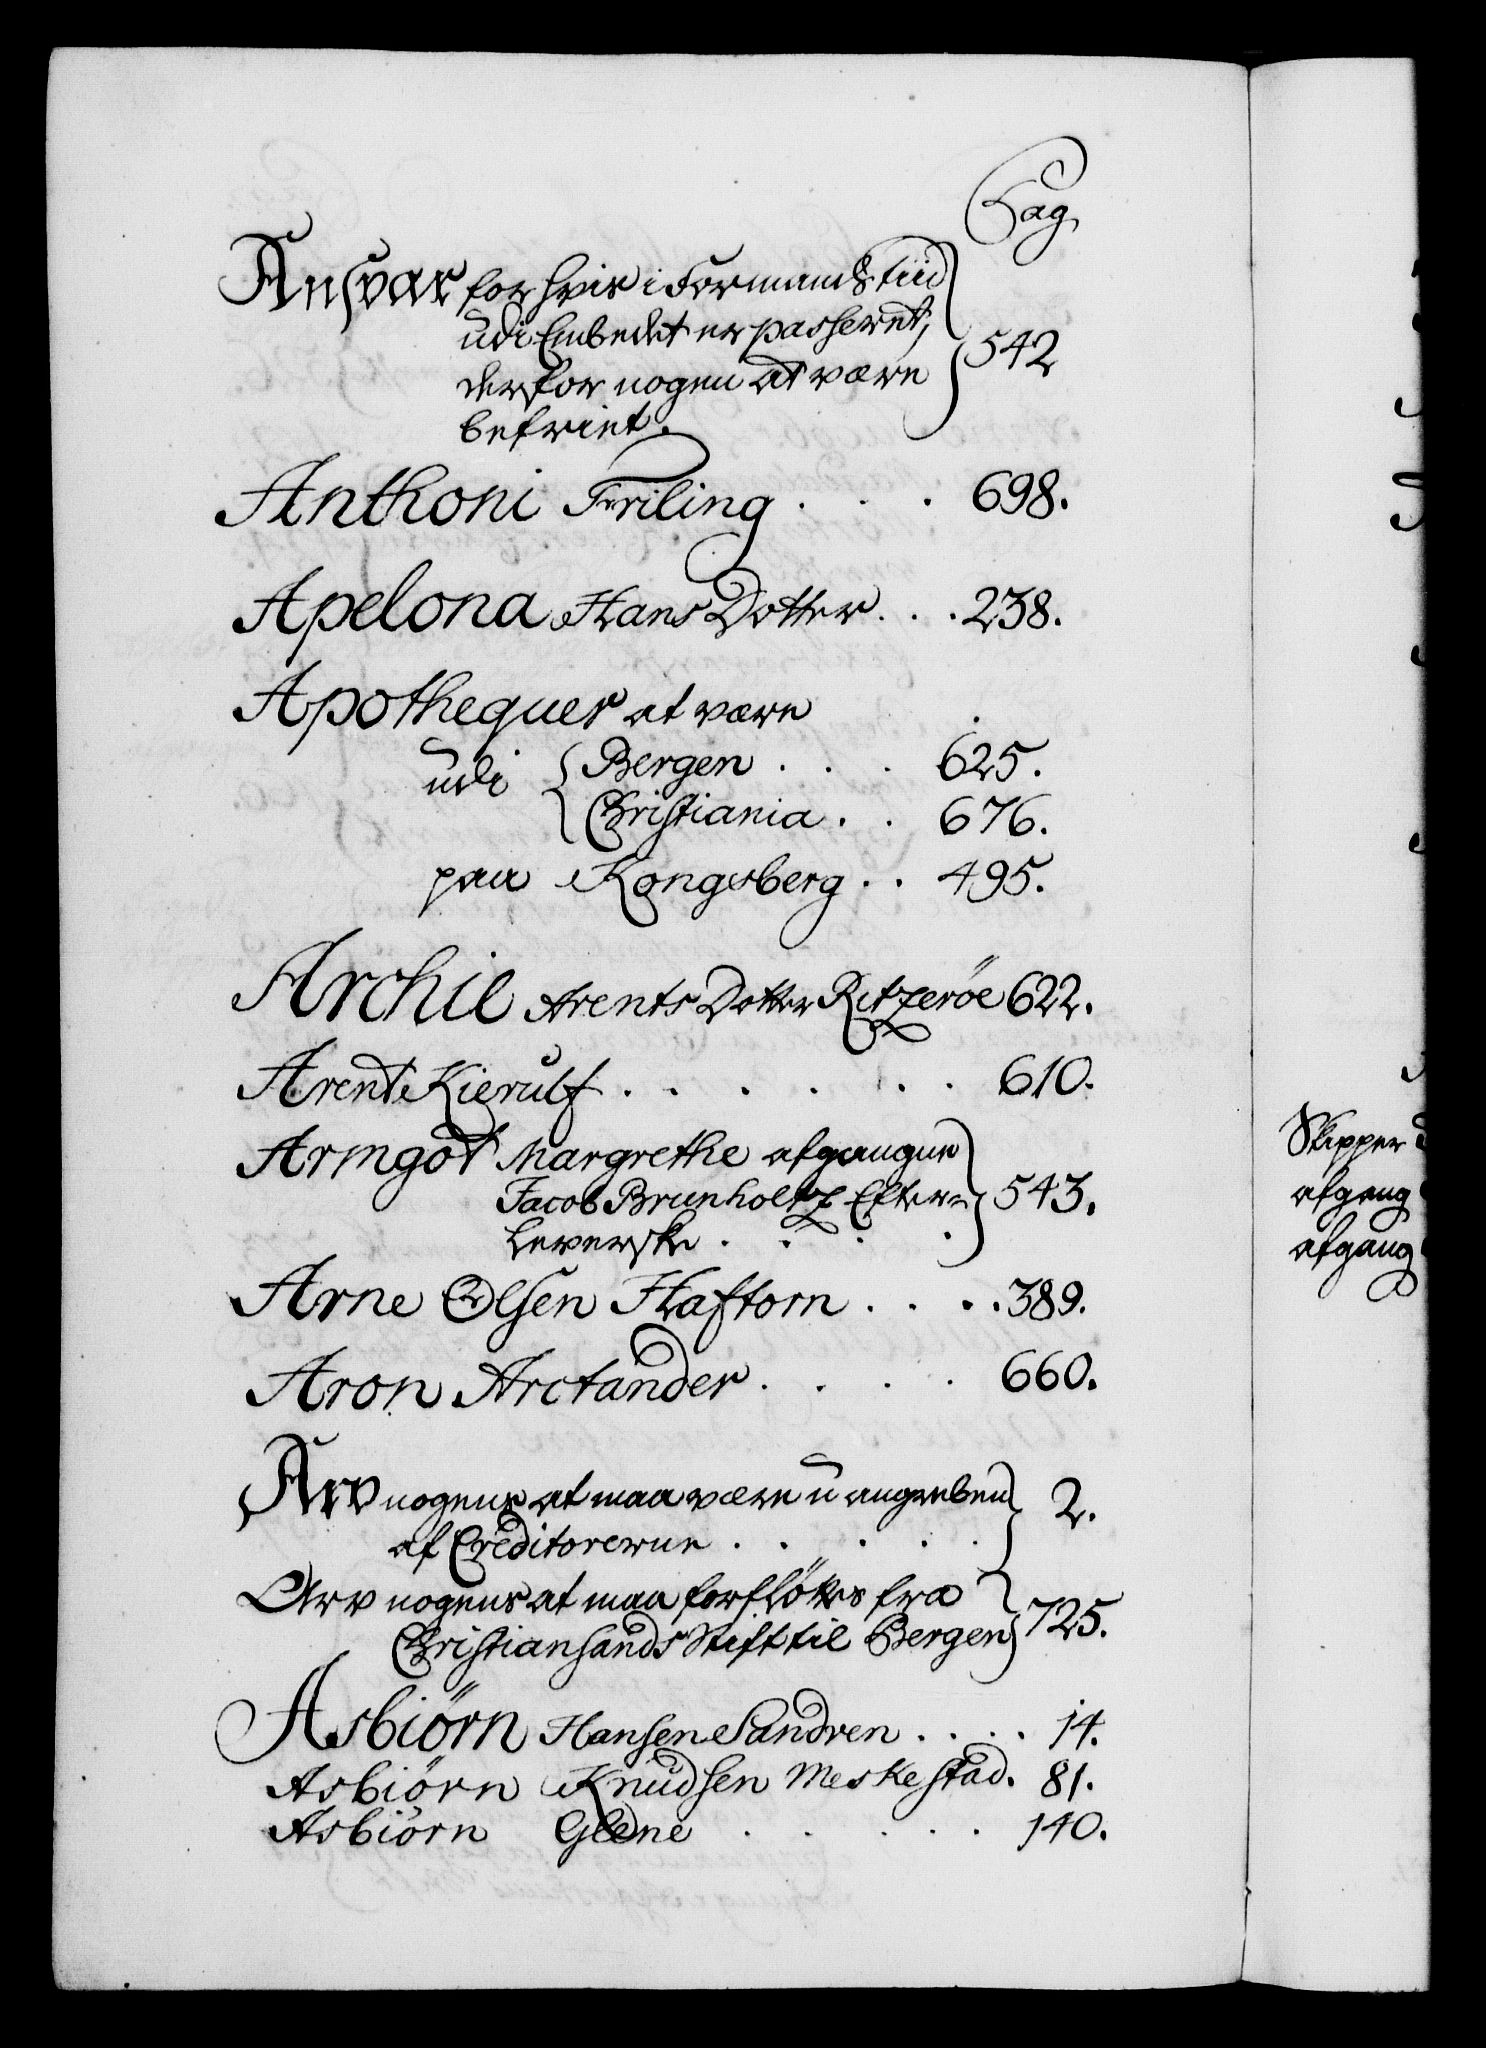 Pag
Ansvar for hvis i Formands tiid
udi Embedet er passeret,
derfor nogen at være
befriet.
542
Anthoni Friling . . . 698.
Apelona Hans Dotter . . . 238.
Apothequer at være
udi Bergen . . . 625.
Christiania . . 676.
paa Kongsberg . . 495.
Archie Arents Dotter Ritzeröe 622.
Arent Kierulf . . . . . . . 610.
Armgot Margrethe afgangne
Jacob Brunholtz Efter-
leverske . . . .
543.
Arne Olsen Haftorn . . . . 389.
Aron Arctander . . . . 660.
Arv nogens at maa være u angreben
af Creditorerne . . . . .
2.
Arv nogens at maa forfløttes fra
Christiansands Stift til Bergen
725.
Asbiörn Hansen Sandven . . . . 14.
Asbiörn Knudsen Meskestad. 81.
Asbiörn Glene . . . . . 140.
Skipper
afgang
afgang